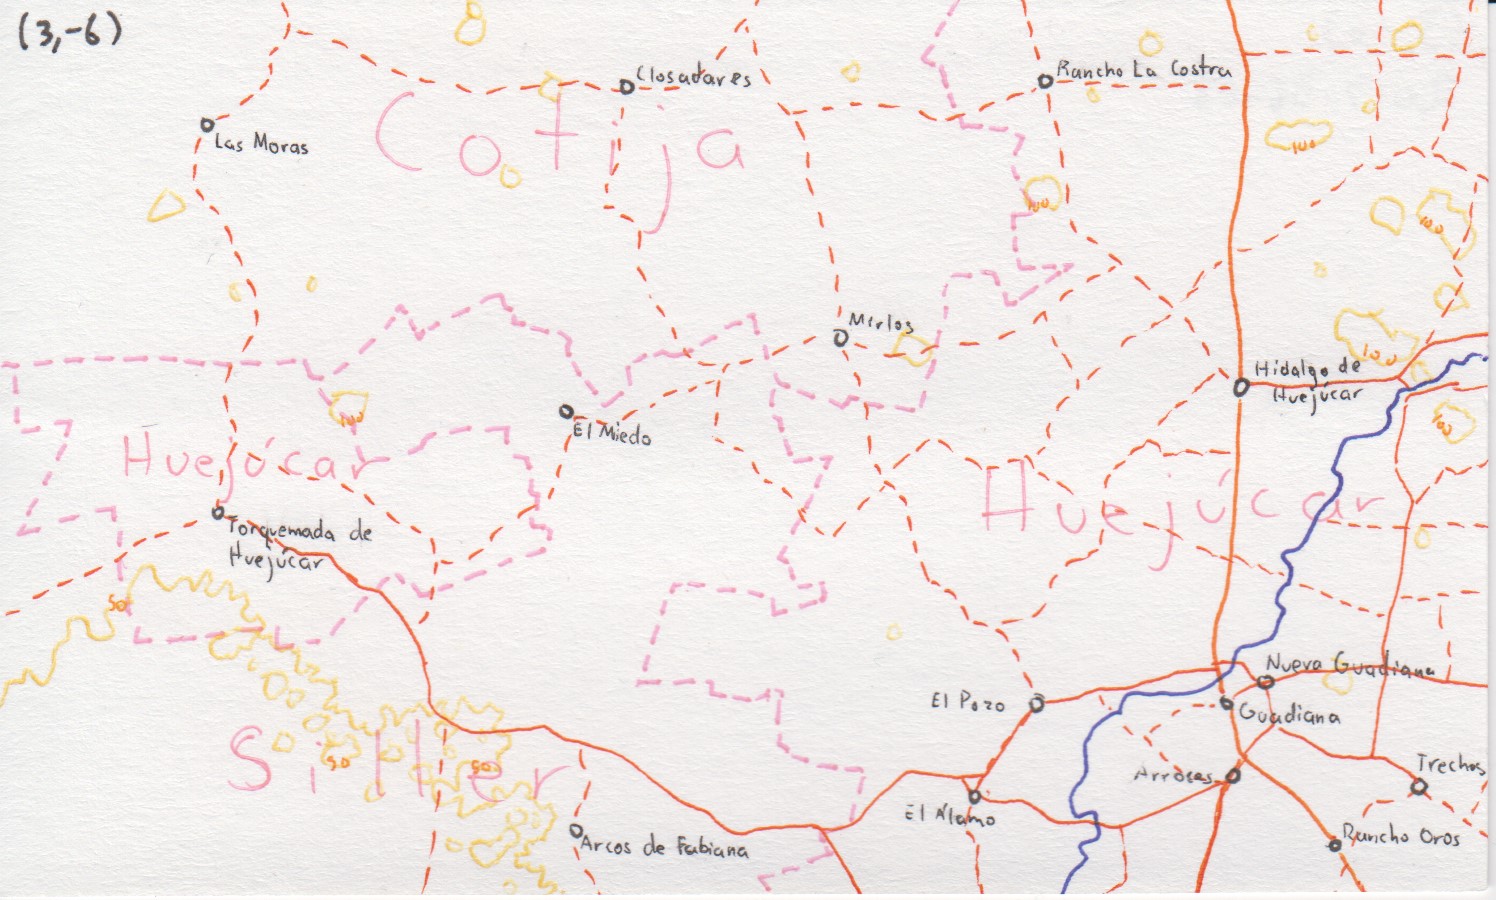 (3,-6)
Closadares
Rancho La Costra
Las Moras
Cotija
100
100
100
Mirlos
100
Hidalgo de
Huejúcar
100
El Miedo
100
Huejúcar
Huejúcar
Torquemada de
Huejúcar
50
Nueva Guadiana
El Pozo
Guadiana
Siller
50
50
Arroces
Trechos
El Álamo
Arcos de Fabiana
Rancho Oros